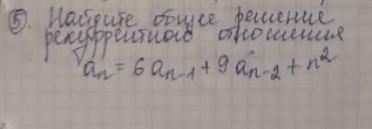 ⑤. Найдите общее решение
рекуррентного отношения
aₙ = 6aₙ₋₁ + 9aₙ₋₂ + n²